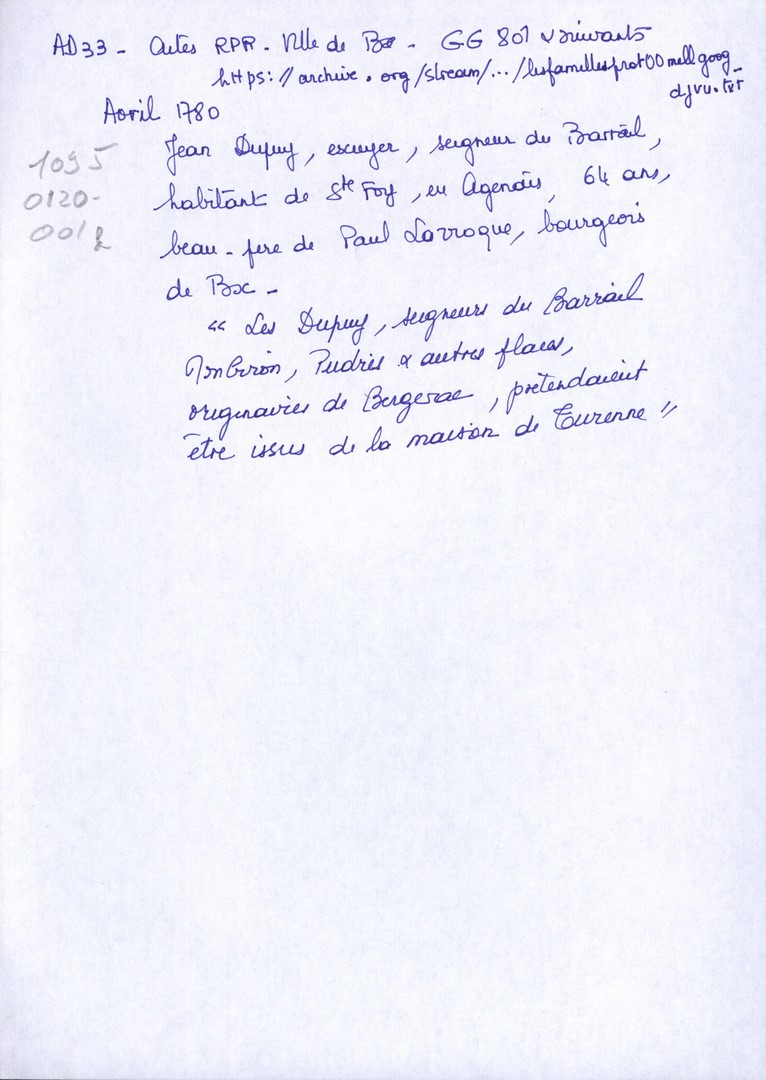 AD33 - Actes RPR. Ville de Bx - GG 801 & suivants
https://archive.org/stream/.../lesfamillesprot00mellgoog_
djvu.txt
Avril 1780
1095
0120-
001
Jean Dupuy, escuyer, seigneur du Barrail,
habitant de Ste Foy, en Agenais, 64 ans,
beau-père de Paul Larroque, bourgeois
de Bx -
"Les Dupuy, seigneurs du Barrail
Pudris & autres places,
originaires de Bergerac, prétendaient
être issus de la maison de Turenne"